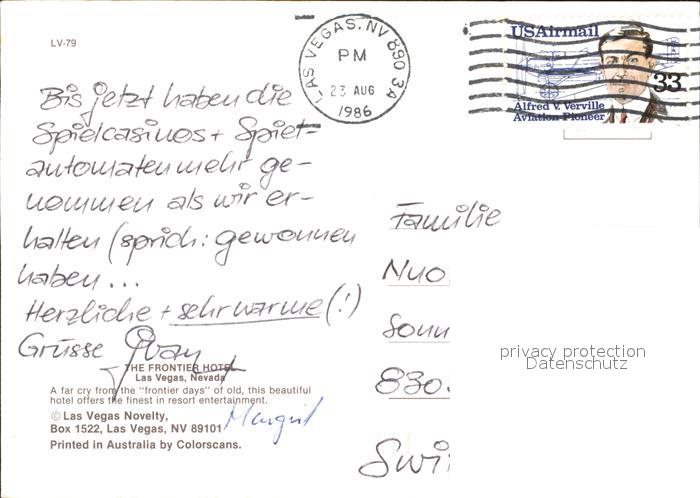 LV-79
LAS VEGAS, NV 890 3A
PM
23 AUG
1986
USAirmail
33
Alfred V. Verville
Aviation Pioneer
Bis jetzt haben die
Spielcasinos + Spiel-
automaten mehr ge-
nommen als wir er-
halten (sprich: gewonnen
haben...
Herzliche + sehr warme (!)
Grüsse
Margrit
Familie
Nuo
Sonn
830
Swi
privacy protection
Datenschutz
THE FRONTIER HOTEL
Las Vegas, Nevada
A far cry from the "frontier days" of old, this beautiful
hotel offers the finest in resort entertainment.
© Las Vegas Novelty,
Box 1522, Las Vegas, NV 89101
Printed in Australia by Colorscans.